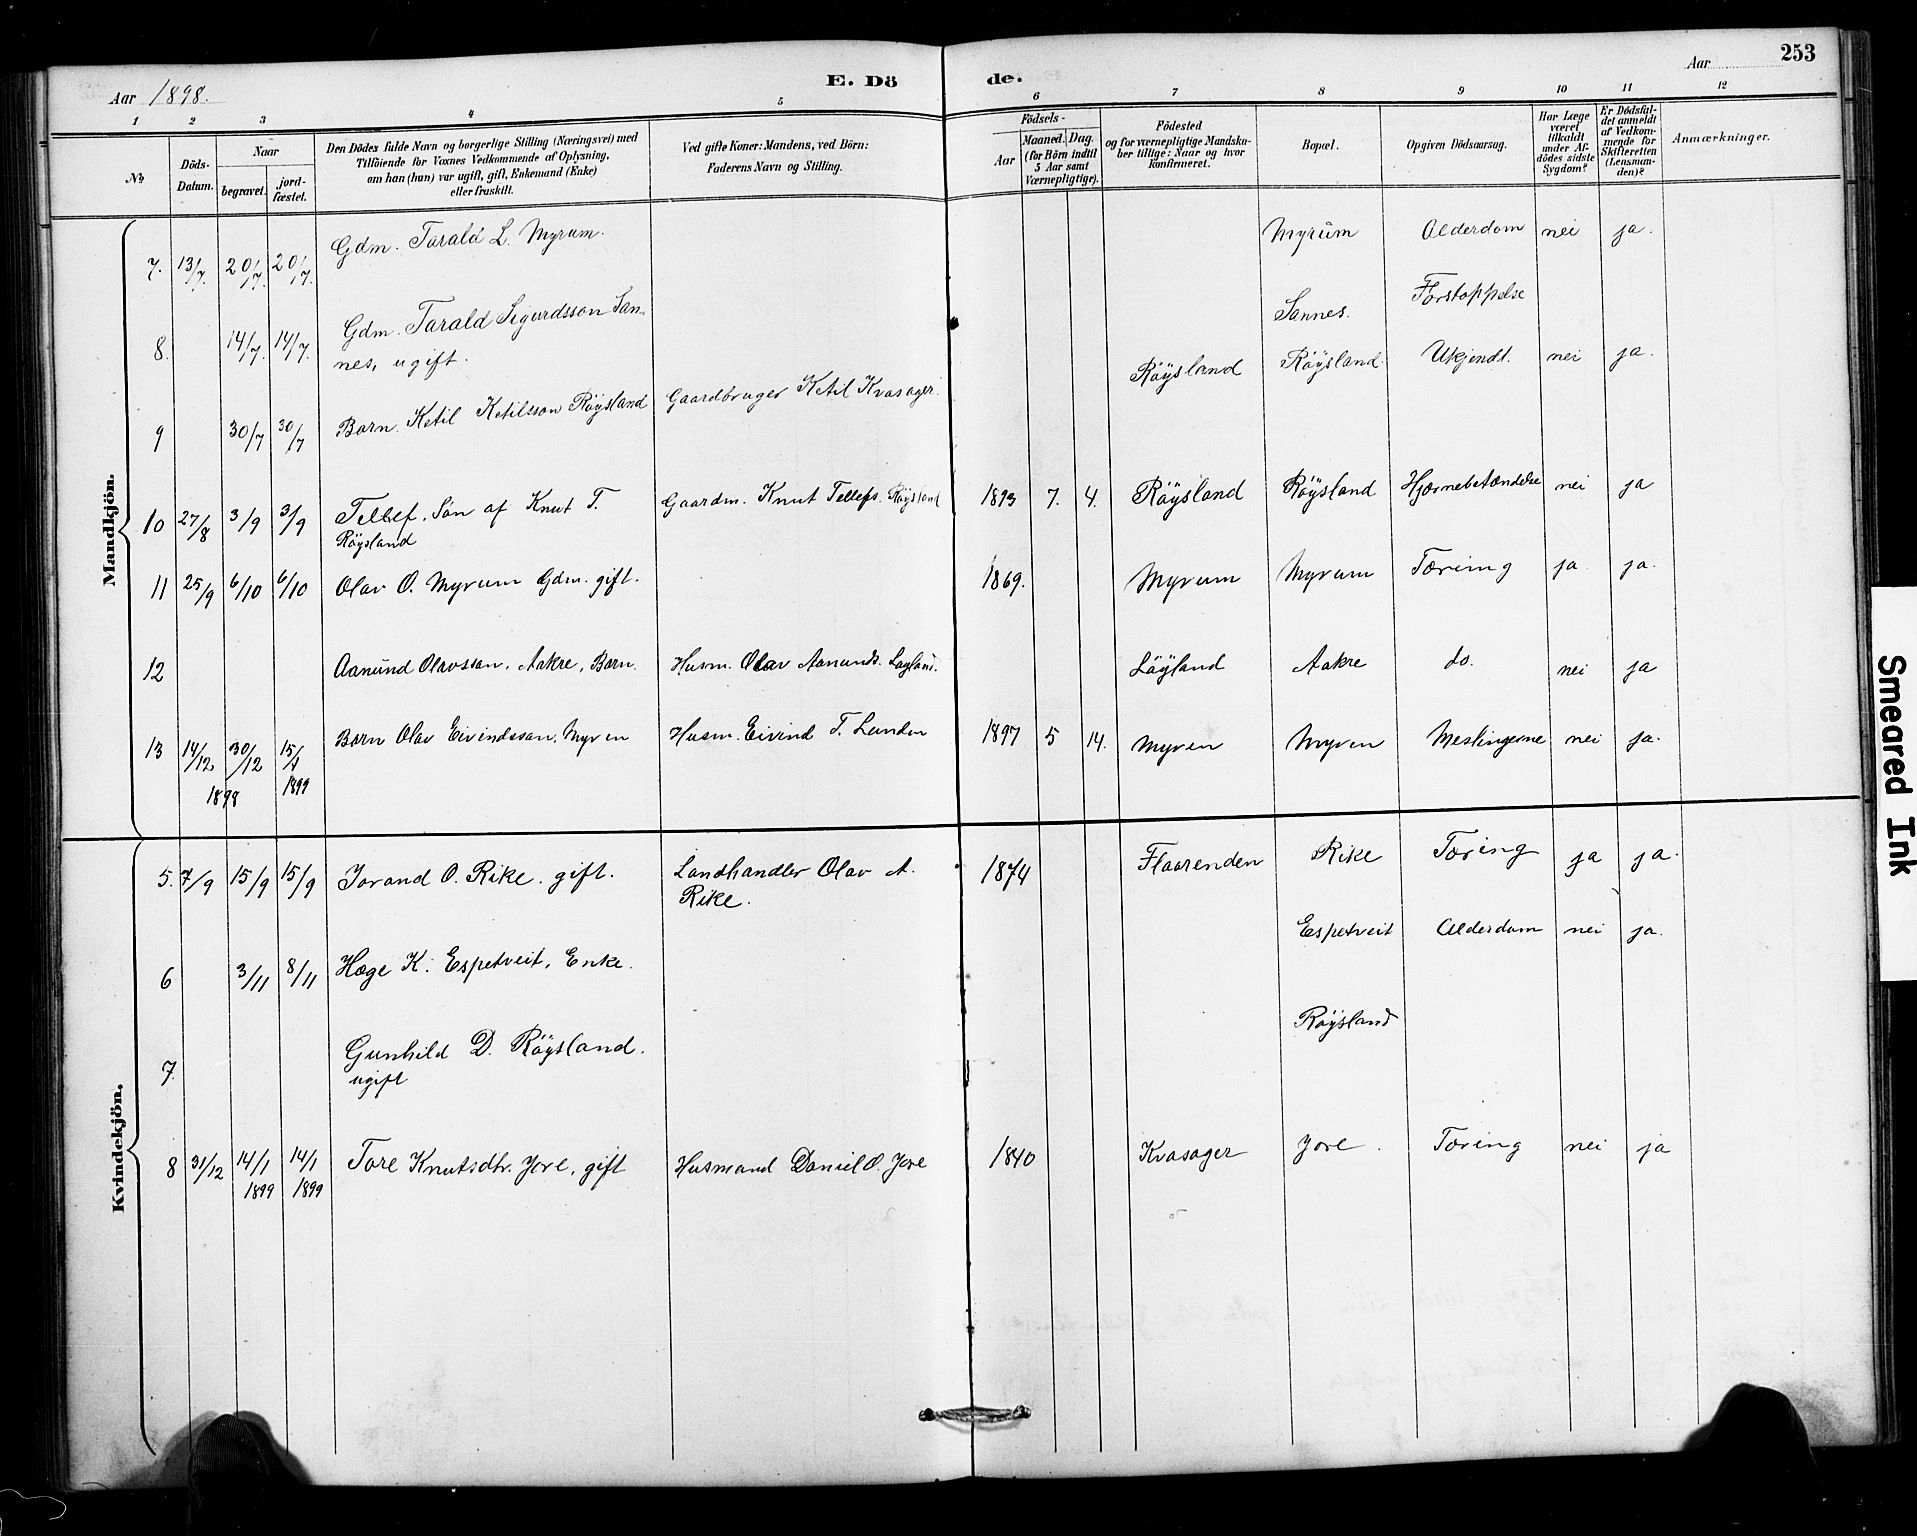 253
Aar 1898.
E. Dö de.
Aar
1 2 3 4 5 6 7 8 9 10 11 12
№
Döds-Datum.
Naar
begravet.
jord-fæstet.
Den Dödes fulde Navn og borgerlige Stilling (Næringsvei) med
Tilföiende for Voxnes Vedkommende af Oplysning,
om han (hun) var ugift, gift, Enkemand (Enke)
eller fraskilt.
Ved gifte Koner: Mandens, ved Börn:
Faderens Navn og Stilling.
Födsels-
Aar
Maaned. Dag.
(for Börn indtil
5 Aar samt
Værnepligtige).
Födested
og for værnepligtige Mandska-
ber tillige: Naar og hvor
konfirmeret.
Bopæl.
Opgiven Dödsaarsag.
Har Læge
været
tilkaldt
under Af-
dödes sidste
Sygdom?
Er Dödsfal-
det anmeldt
af Vedkom-
mende for
Skifteretten
(Lensman-
den)?
Anmærkninger.
Mandkjön.
7. 13/7. 20/7. 20/7. Gdm. Tarald L. Myrum. Myrum Alderdom nei ja.
8. 14/7. 14/7. Gdm. Tarald Sigurdsson San-
nes, ugift. Sannes. Forstoppelse
9 30/7 30/7 Barn. Ketil Ketilsson Röysland Gaardbruger Ketil Kvasager. Röysland Röysland. Ukjendt. nei ja.
10 27/8 3/9 3/9 Tellef, Sön af Knut T.
Röysland Gaardm. Knut Tellefs. Röysland 1893 7. 4. Röysland Röysland Hjærnebetændelse nei ja
11 25/9 6/10 6/10 Olav O. Myrum Gdm. gift. 1869. Myrum Myrum Tæring ja ja.
12 Aanund Olavsson, Aakre, Barn. Husm. Olav Aanunds. Løyland. Löyland Aakre do. nei ja
13 14/12 30/12 1898 15/1 1899 Barn Olav Eivindsson, Myren Husm. Eivind T. Lunden 1897 5 14. Myren Myren Meslingerne nei ja.
Kvindekjön.
5. 7/9 15/9 15/9 Jorand O. Rike. gift. Landhandler Olav A.
Rike. 1874 Flaarenden Rike Tæring ja ja.
6 3/11 8/11 Hæge K. Espetveit, Enke. Espetveit Alderdom nei ja.
7. Gunhild D. Röysland.
ugift Röysland
8 31/12 14/1 1899 14/1 1899 Tore Knutsdtr. Jore, gift Husmand Daniel O. Jore 1840 Kvasager Jore. Tæring nei ja
Smeared Ink